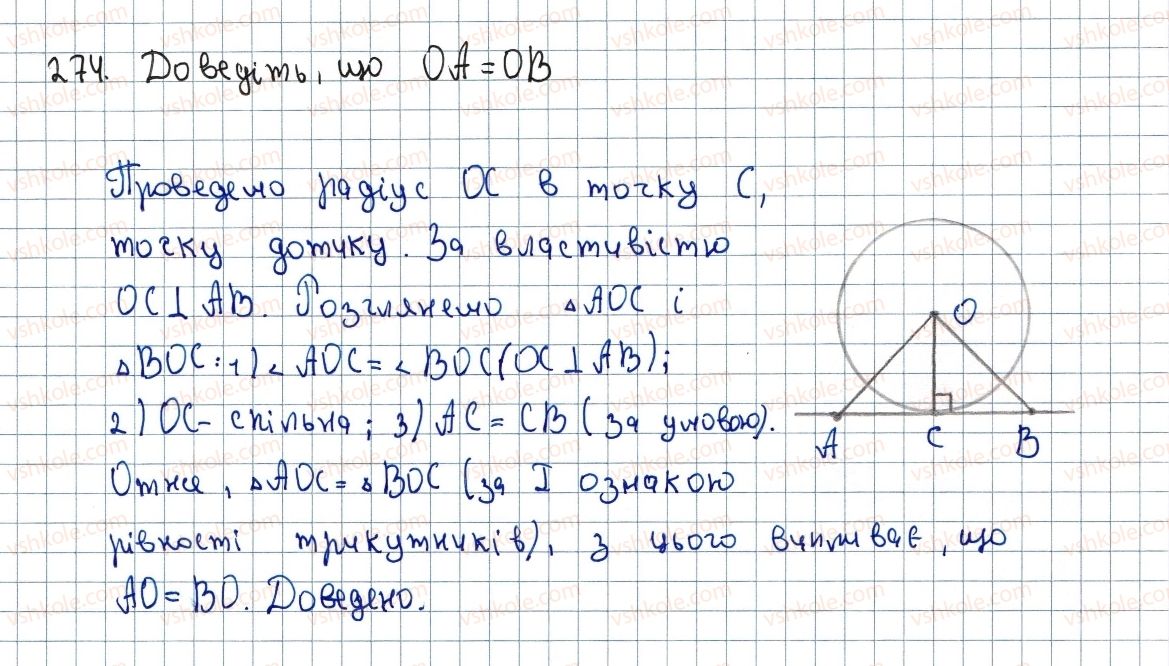 274. Доведіть, що OA = OB
Проведемо радіус OC в точку C,
точку дотику. За властивістю
OC ⊥ AB. Розглянемо △AOC і
△BOC: 1) ∠AOC = ∠BOC (OC ⊥ AB);
2) OC - спільна; 3) AC = CB (за умовою).
Отже, △AOC = △BOC (за I ознакою
рівності трикутників), з цього випливає, що
AO = BO. Доведено.
O
A C B
vshkole.com